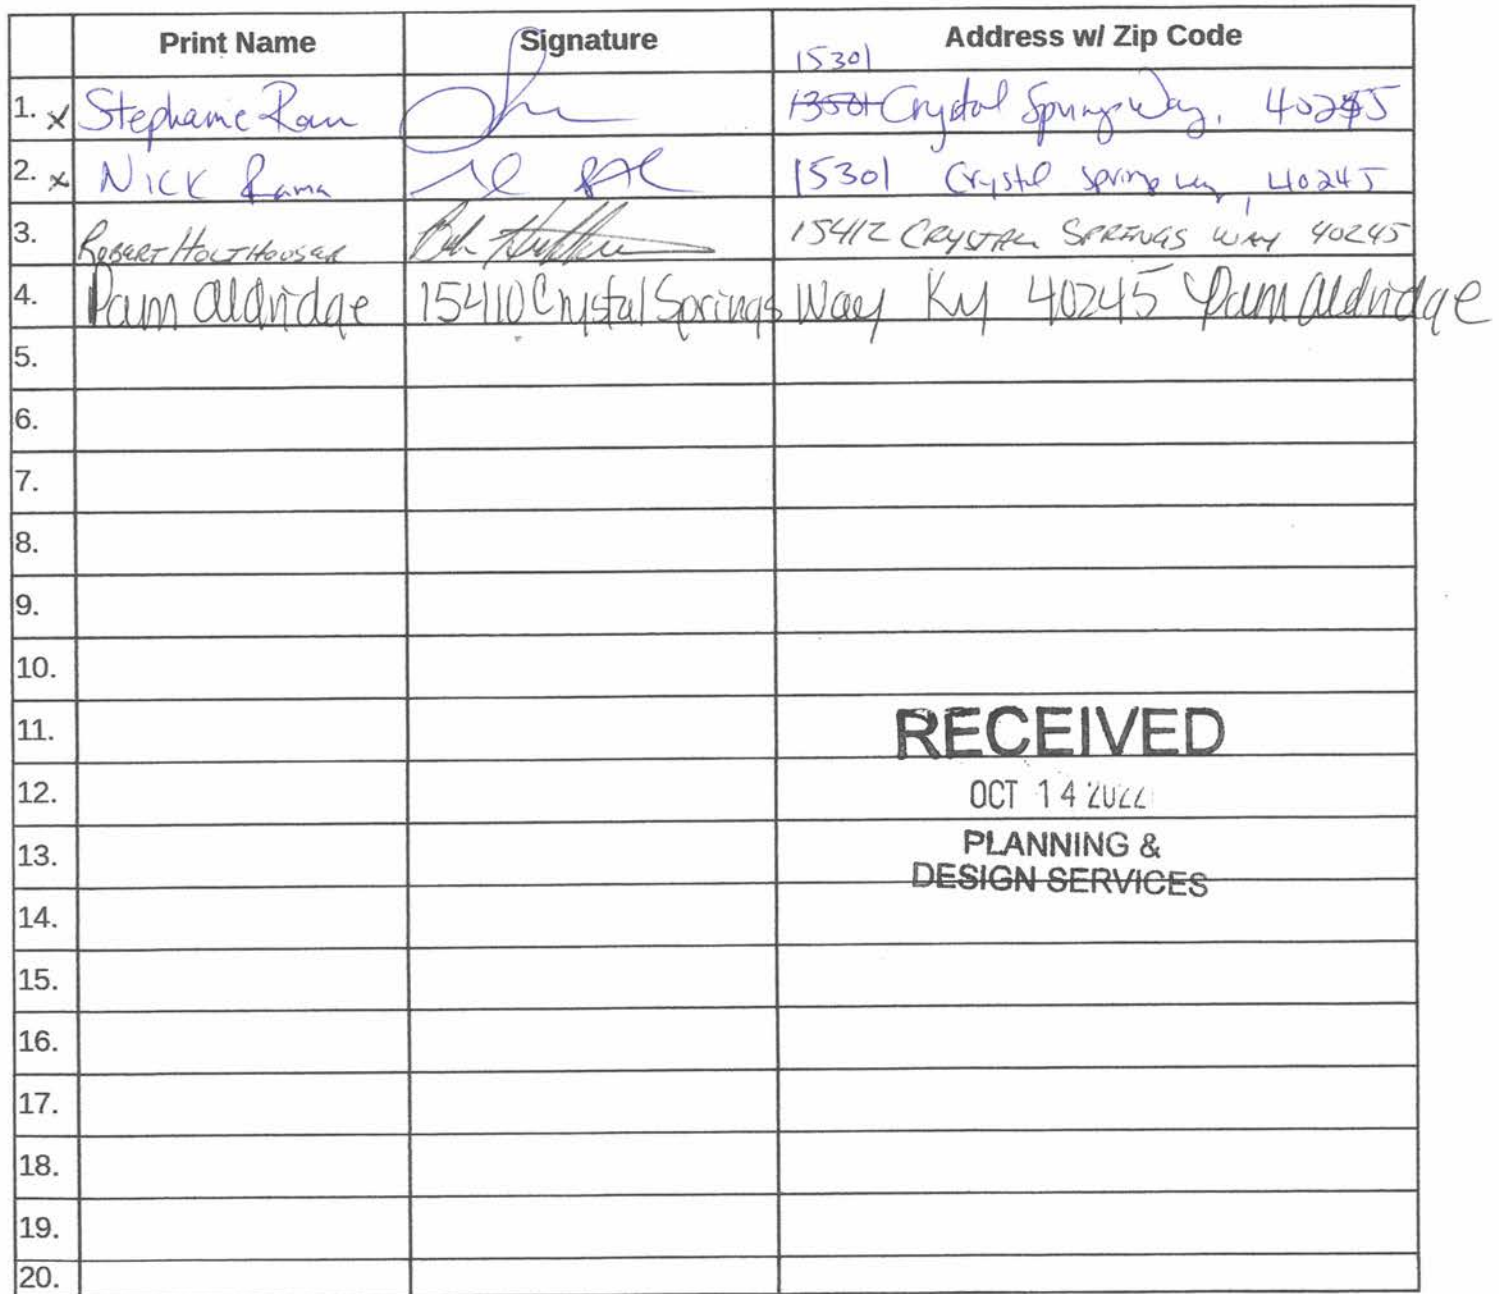 Print Name Signature Address w/ Zip Code
15301
1. x Stephanie 13501 Crystal Springs Way, 40245
2. x Nick Rama 15301 Crystal Springs Way, 40245
3. ROBERT HOLTHOUSER 15412 CRYSTAL SPRINGS WAY 40245
4. Pam Aldridge 15410 Crystal Springs Way Ky 40245 Pam Aldridge
5.
6.
7.
8.
9.
10.
11.
RECEIVED
12.
OCT 14 2022
13.
PLANNING &
DESIGN SERVICES
14.
15.
16.
17.
18.
19.
20.